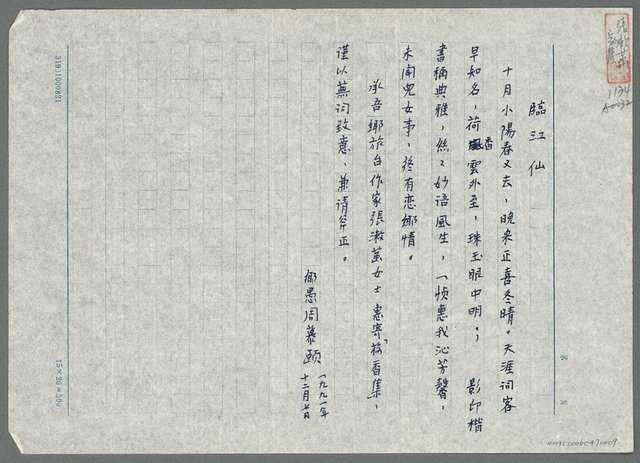 臨江仙
十月小陽春又去，晚来正喜冬晴。天涯詞客
早知名，荷香雲外至，珠玉眼中明。； 影印楷
書稱典雅，絲〻妙語風生，一幀惠我沁芳馨，
未聞兒女事，終有恋鄉情。
承吾鄉旅台作家張漱菡女士惠寄「荷香集」，
謹以蕪词致意，兼请斧正。
鄉愚周慕頤
一九九一年
十二月七日
張漱菡
1134
A0032
319)100821
15×20=300
NMTL20060470009